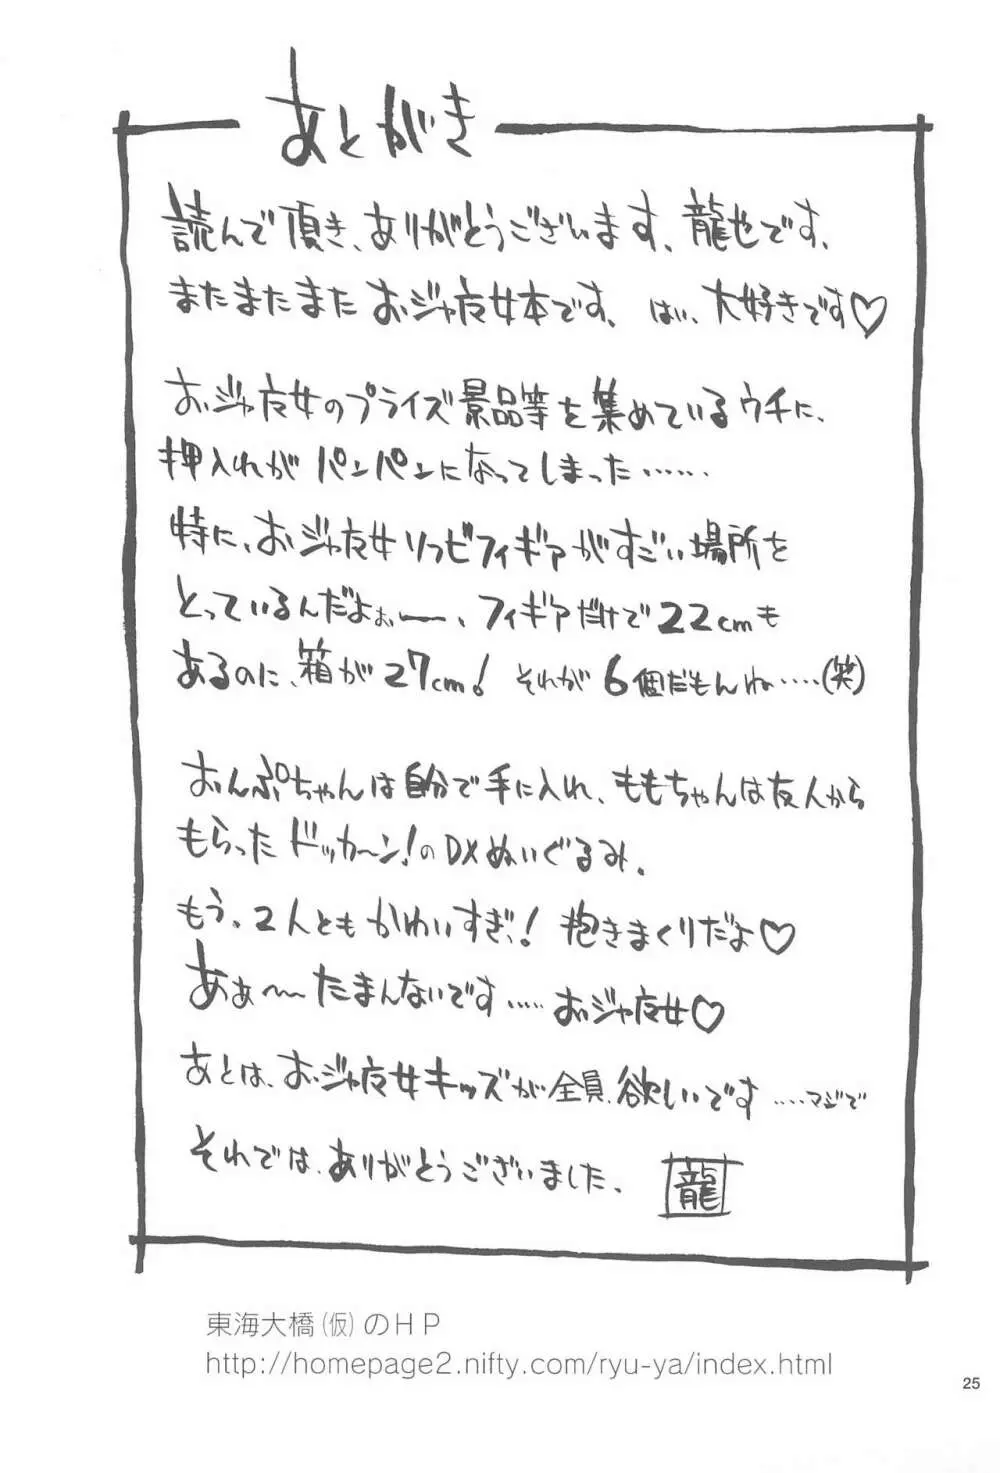 あとがき
読んで頂き、ありがとうございます、龍也です、
またまたまたおジャ魔女本です、はい、大好きです♡
おジャ魔女のプライズ景品等を集めているウチに、
押入れがパンパンになってしまった……
特に、おジャ魔女ソフビフィギアがすごい場所を
とっているんだよぉー、フィギアだけで22cmも
あるのに、箱が27cm! それが6個だもんね……(笑)
おんぷちゃんは自分で手に入れ、ももちゃんは友人から
もらったドッカ〜ン!のDXぬいぐるみ。
もう、2人ともかわいすぎ、! 抱きまくりだよ♡
あぁ〜〜たまんないです……おジャ魔女♡
あとは、おジャ魔女キッズが全員、欲しいです ‥‥マジで
それでは、ありがとうございました。 龍
東海大橋(仮)のHP
http://homepage2.nifty.com/ryu-ya/index.html
25